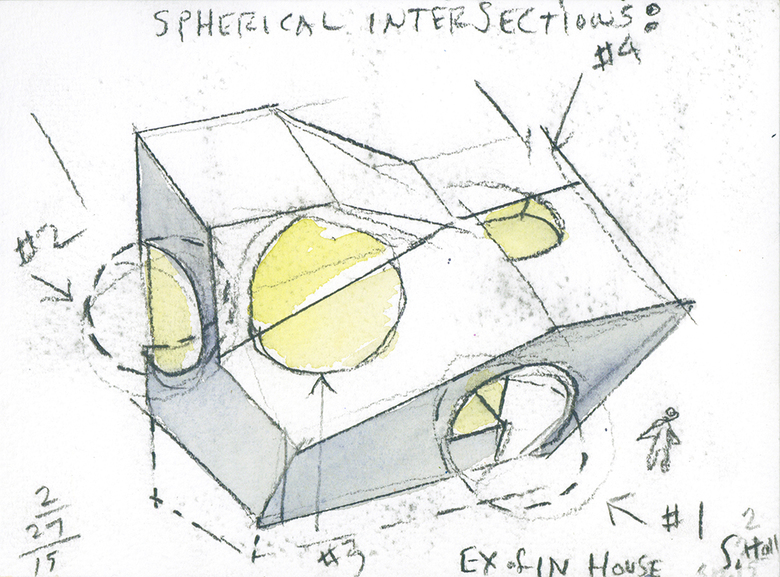 SPHERICAL INTERSECTIONS:
#4
#2
#1
2
27
15
#3
EX of IN HOUSE
S. Holl